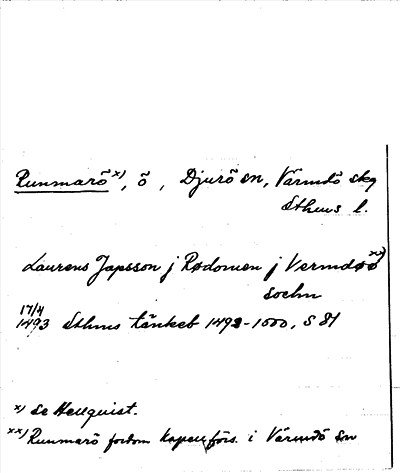 Runmarö x), ö, Djurö sn, Värmdö skg
Sthms l.
Laurens Japsson j Rødomen j Vermdøø xx)
sochn
17/4
1493 Sthms tänkeb 1492-1500, S 81
x) Se Hellquist.
xx) Runmarö fordom kapellförs. i Värmdö sn